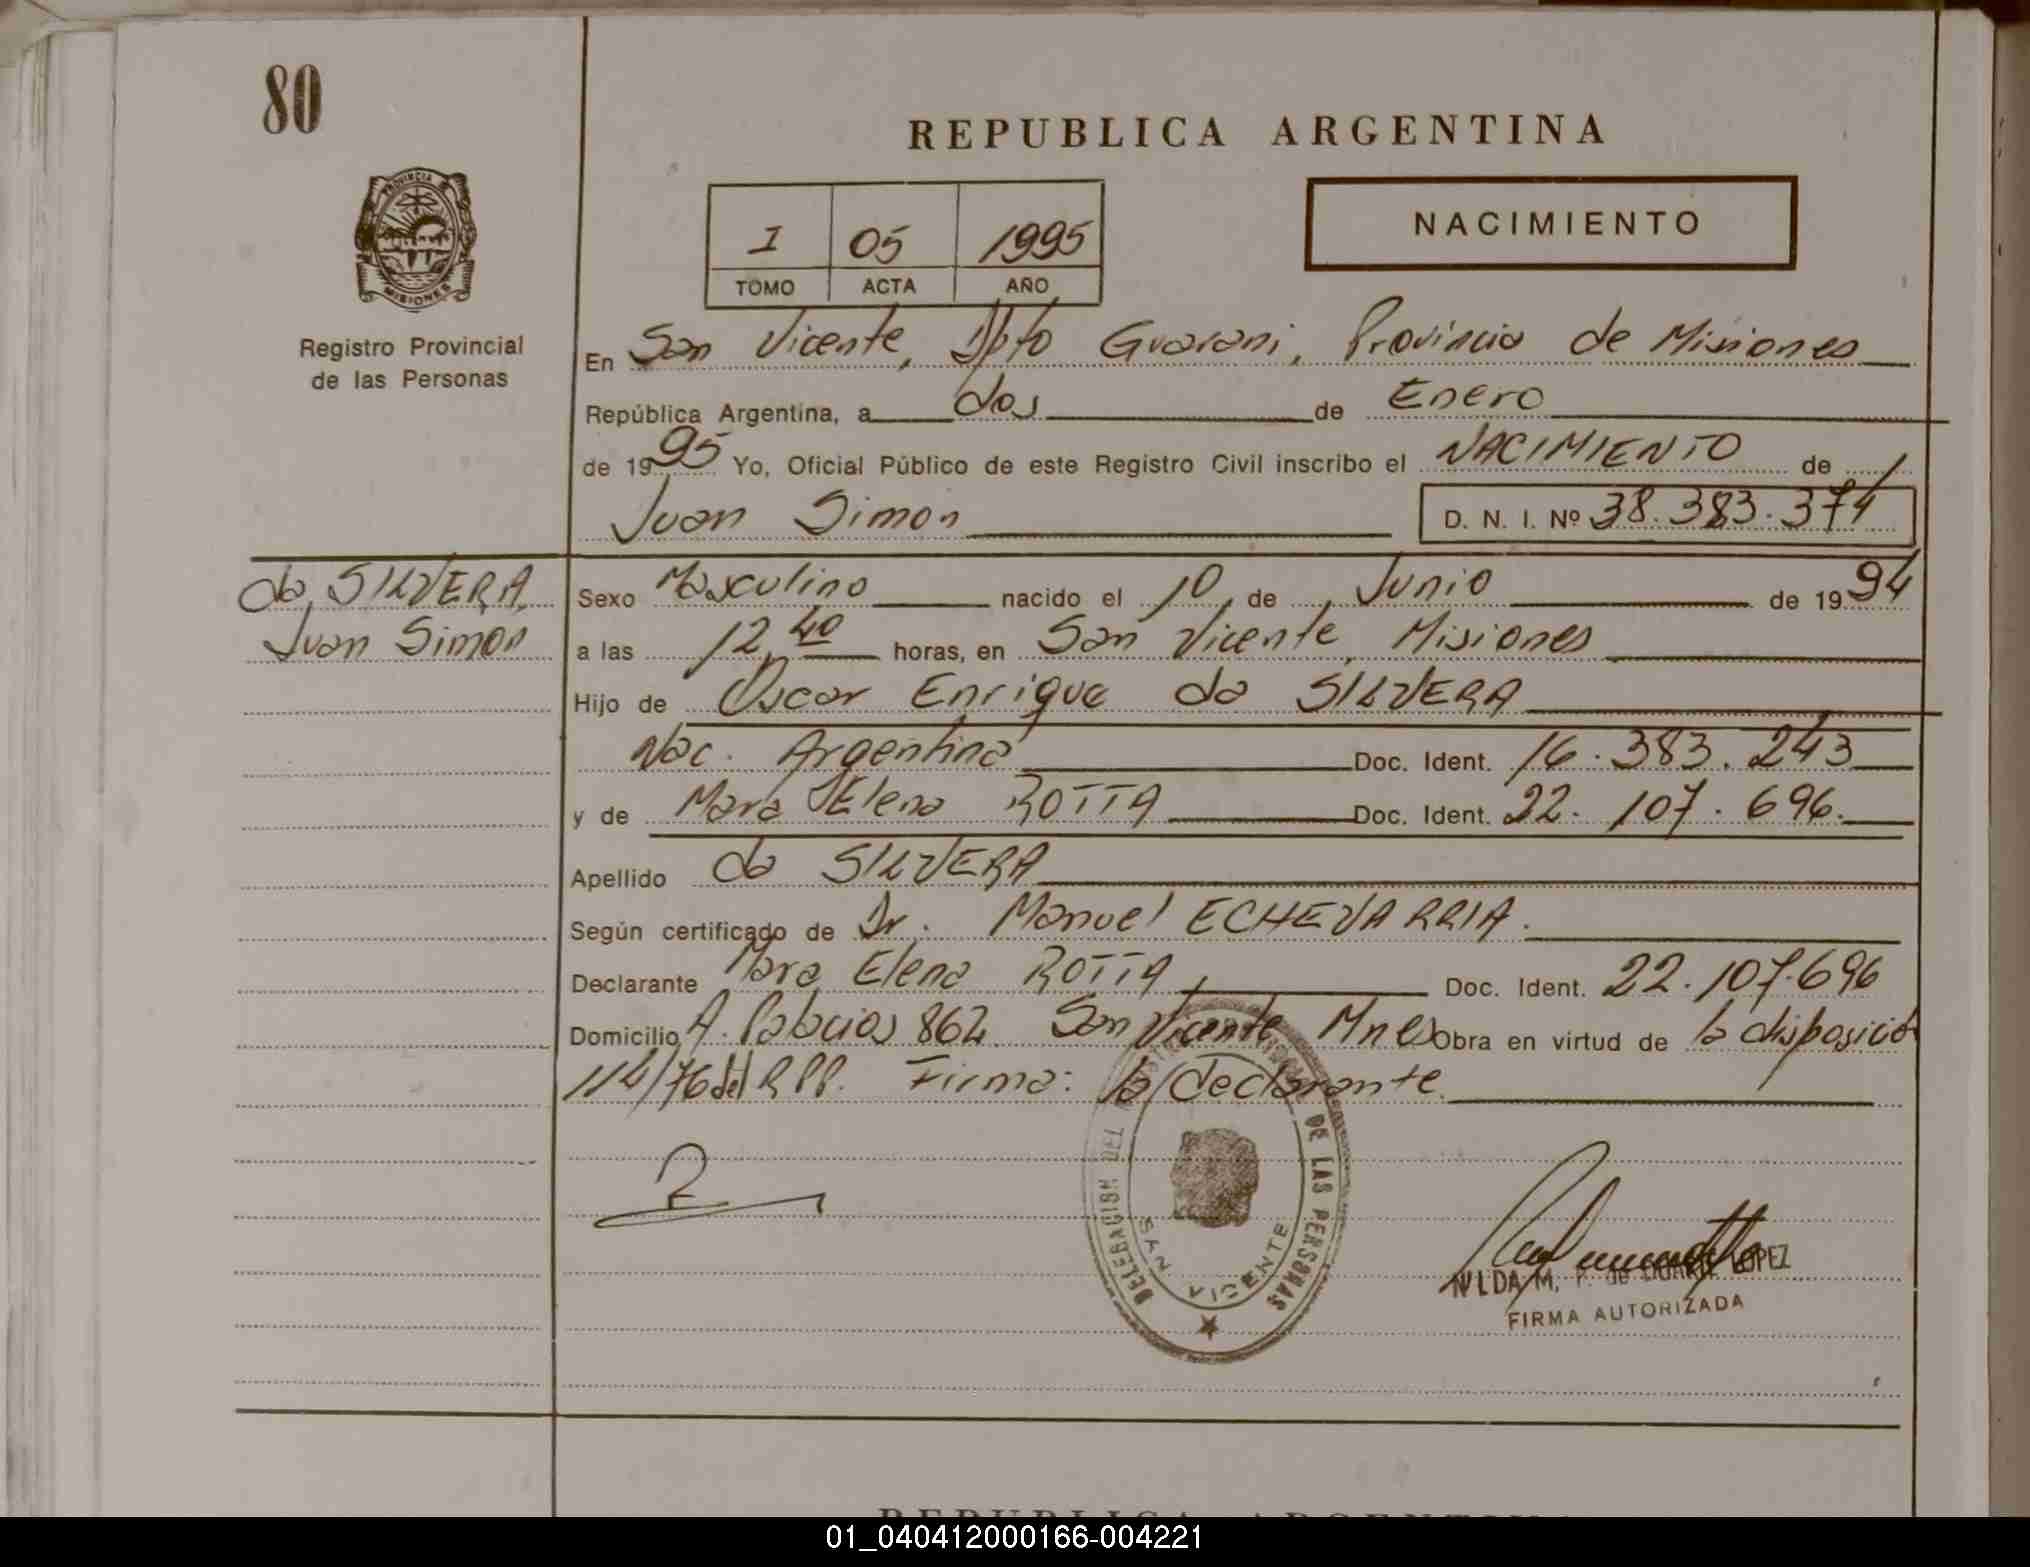 80
REPUBLICA ARGENTINA
PROVINCIA DE
MISIONES
NACIMIENTO
I 05 1995
TOMO ACTA AÑO
Registro Provincial
de las Personas
En San Vicente, Dpto Guarani, Provincia de Misiones
República Argentina, a dos de Enero
de 1995 Yo, Oficial Público de este Registro Civil inscribo el NACIMIENTO de
Juan Simon D. N. I. Nº 38.383.374
da SILVERA
Juan Simon
Sexo Masculino nacido el 10 de Junio de 1994
a las 12,40 horas, en San Vicente, Misiones
Hijo de Oscar Enrique da SILVERA
Nac. Argentina Doc. Ident. 16.383.243
y de Mara Elena ROTTA Doc. Ident. 22.107.696.
Apellido da SILVERA
Según certificado de Dr. Manuel ECHEVARRIA.
Declarante Mara Elena ROTTA Doc. Ident. 22.107.696
Domicilio A. Palacios 862 San Vicente Mnes Obra en virtud de la disposició
114/76 del RPP. Firma: la declarante.
DELEGACION DEL DE LAS PERSONAS
SAN VICENTE
NILDA M. P. de LOPEZ
FIRMA AUTORIZADA
01_040412000166-004221